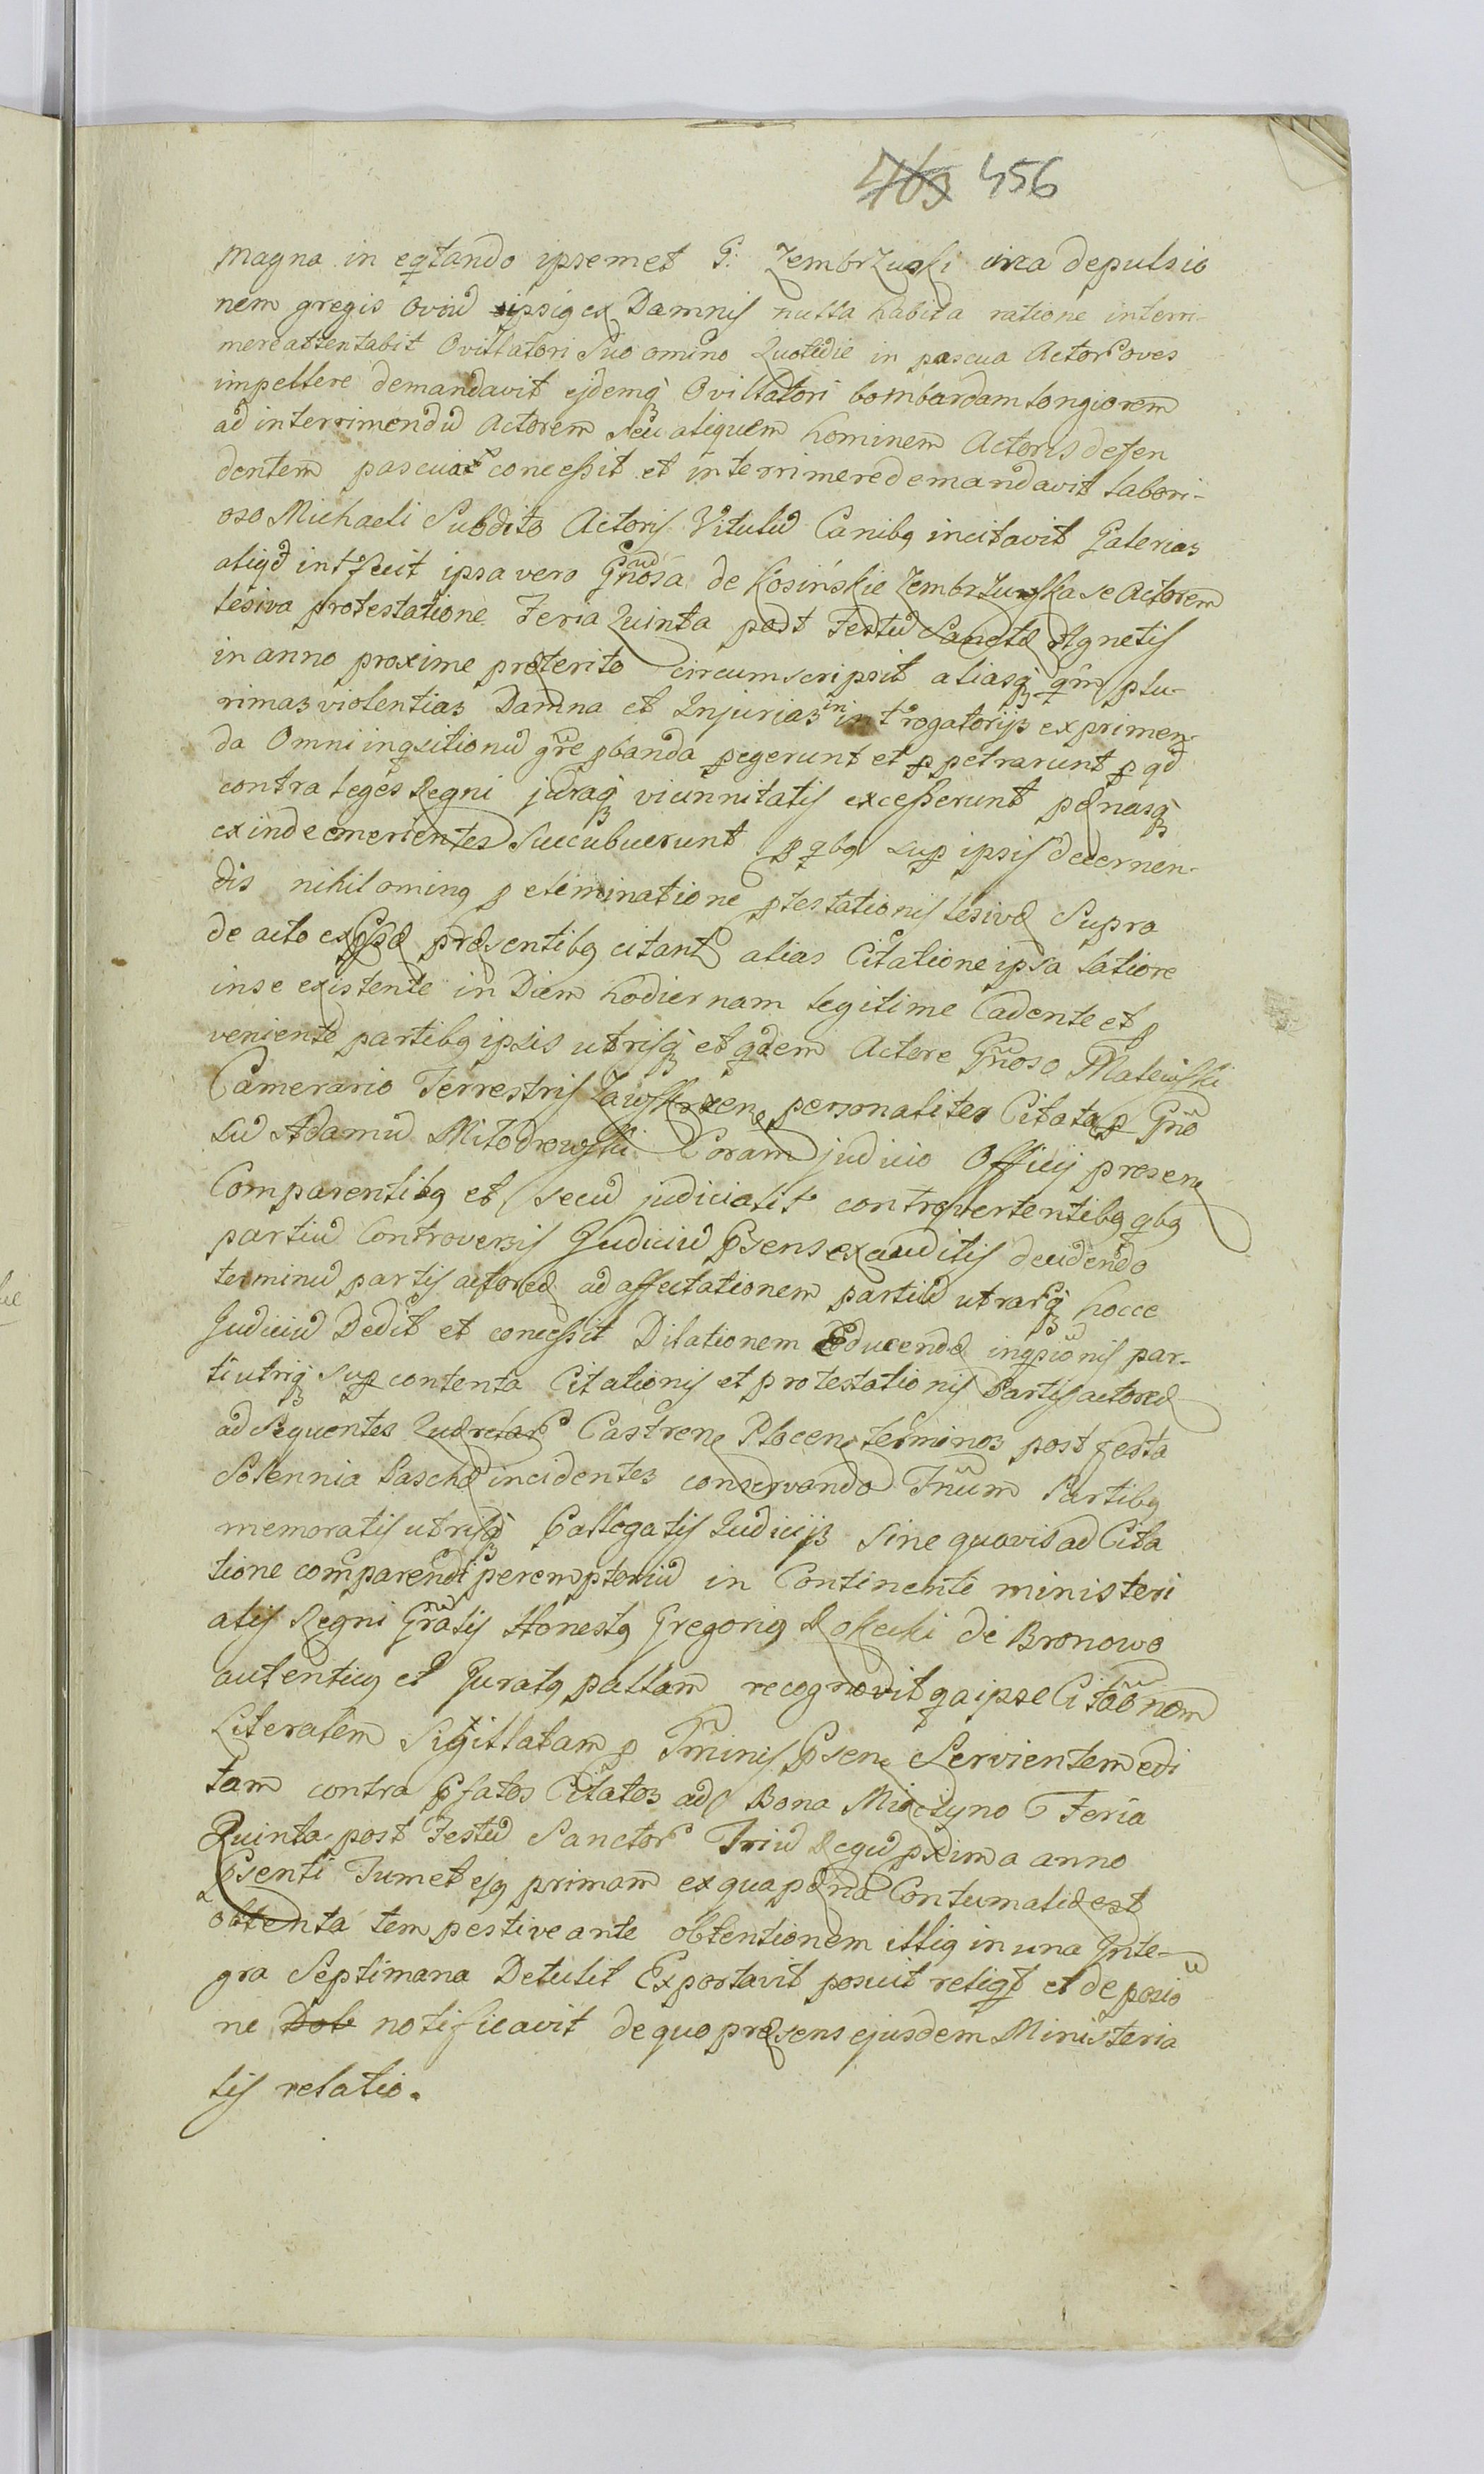 456
magna in eqtando ipsemet G: Zembrzuski circa depulsio
nem gregis Oviū ipsiq ex Damnis nulla habita ratione interi-
mere attentabit Ovillatori Suo omino Quotidie in pascua Actoris oves
impellere demandavit ejdemq Ovillatori bombardam longiorem
ad interrimendū Actorem seu aliquem hominem Actoris defen
dentem pascua concessit et interrimere demandavit labori-
oso Michaeli Subdito Actoris Vitulū Canibq incitavit
aliqd intfecit ipsa vero Gnosa de Kosińskie Zembrzuska se Actorem
lesiva protestatione Feria Quinta post Festū Sanctæ Agnetis
in anno proxime præterito circumscripsit aliasq qm plu-
rimas violentias Damna et Injurias in introgatorijs exprimen-
da Omni inqsitionū gre pbanda pegerunt et ppetrarunt p qd
contra leges Regni juraq vicinnitatis excesserunt pænasq
exinde emerientes Succubuerunt p qbq sup ipsis decernen-
dis nihilominq p eliminatione ptestationis lesivæ Supra
de acto expssæ præsentibq citant alias Citatione ipsa latiore
in se existente in Diem hodiernam legitime Cadente et p
veniente partibq ipsis utrisq et qdem Actore Gnoso Mlatewski
Camerario Terrestris Zawskrzen personaliter Citata p Gno
sū Adamū Miłodrowski Coram judicio Officij presen
Comparentibq et secū judicialit controvertentibq qbq
partiū Controversis Judiciū Psens exauditis decidendo
terminū partis actoreæ ad affectationem partiū utrarq hocce
Judiciū Dedit et concessit Dilationem Educendæ inqsionis par-
ti utriq sup contenta Citationis et protestationis Partis actoreæ
ad Sequentes Querelar Castren Placen terminos post festa
Solennia Paschæ incidentes conservando Tnum Partibq
memoratis utrisq Pallegatis Judicijs Sine quavis ad Cita
tione comparendi peremptoriū in Continenti ministeri
alis Regni Gralis Honestq Gregoriq Rokicki de Bronowo
autenticq et Juratq pallam recognovit qa ipse Citaonem
Literalem Sigillatam p Tminis Psen Servientem edi
tam contra Pfatos Citatos ad Bona Miączyno Feria
Quinta post Festū Sanctor Triū Regū pxima anno
Psenti Tumet ejq primam ex qua pæna Contumaciæ est
obtenta tempestive ante obtentionem illiq in una Inte-
gra Septimana Detulit Exportavit posuit reliqt et de posio
ne Dob notificavit de quo præsens ejusdem Ministeria
lis relatio.